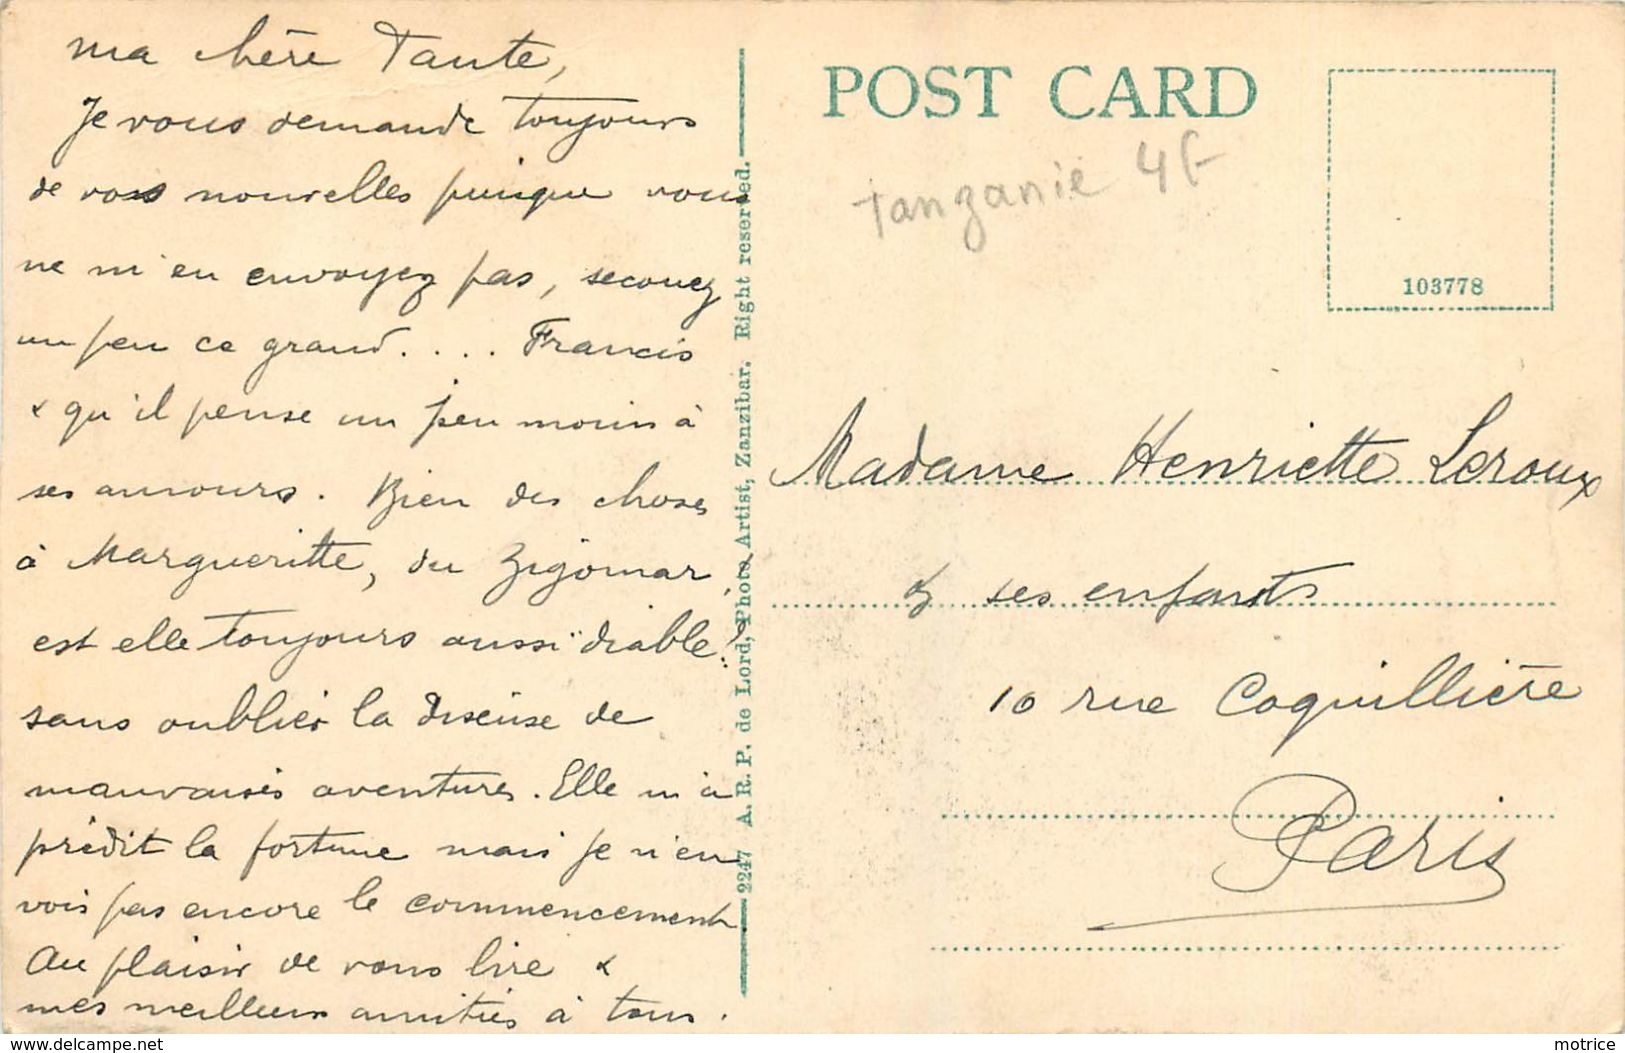 ma chère Tante,
Je vous demande toujours
de vos nouvelles puisque vous
ne m'en envoyez pas, secouez
un peu ce grand.... Francis
& qu'il pense un peu moins à
ses amours. Bien des choses
à Margueritte, du Zigomar,
est elle toujours aussi diable?
sans oublier la diseuse de
mauvaises aventures. Elle m'a
prédit la fortune mais je n'en
vois pas encore le commencement
Au plaisir de vous lire &
mes meilleurs amitiés à tous.
2247 A. R. P. de Lord, Photo Artist, Zanzibar. Right reserved.
POST CARD
Tanzanie 4F
103778
Madame Henriette Leroux
& ses enfants
10 rue Coquillière
Paris
https://www.delcampe.net
motrice